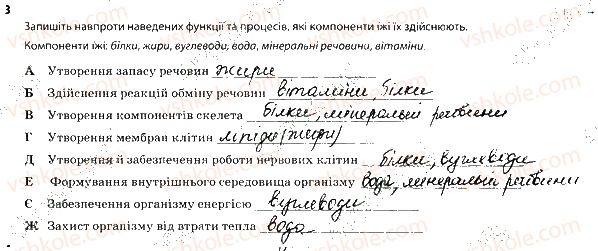 3
Запишіть навпроти наведених функції та процесів, які компоненти їжі їх здійснюють.
Компоненти їжі: білки, жири, вуглеводи, вода, мінеральні речовини, вітаміни.
А Утворення запасу речовин жири
Б Здійснення реакцій обміну речовин вітаміни, білки
В Утворення компонентів скелета білки, мінеральні речовини
Г Утворення мембран клітин ліпіди (жири)
Д Утворення й забезпечення роботи нервових клітин білки, вуглеводи
Е Формування внутрішнього середовища організму вода, мінеральні речовини
Є Забезпечення організму енергією вуглеводи
Ж Захист організму від втрати тепла вода